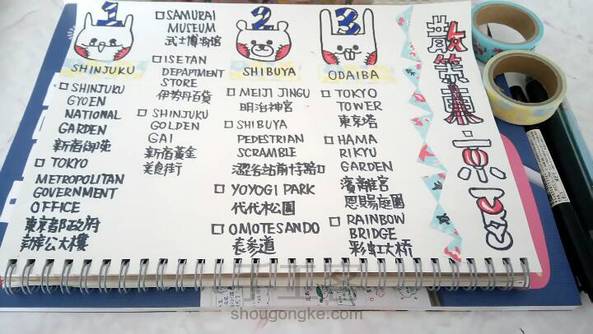 1
SHINJUKU
□ SHINJUKU
GYOEN
NATIONAL
GARDEN
新宿御苑
□ TOKYO
METROPOLITAN
GOVERNMENT
OFFICE
東京都政府
□ SAMURAI
MUSEUM
武士博物館
□ ISETAN
DEPARTMENT
STORE
伊勢丹百貨
□ SHINJUKU
GOLDEN
GAI
新宿黃金
美食街
2
SHIBUYA
□ MEIJI JINGU
明治神宮
□ SHIBUYA
PEDESTRIAN
SCRAMBLE
澀谷站前十字路口
□ YOYOGI PARK
代代木公園
□ OMOTESANDO
表參道
3
ODAIBA
□ TOKYO
TOWER
東京塔
□ HAMA
RIKYU
GARDEN
濱離宮
恩賜庭園
□ RAINBOW
BRIDGE
彩虹大桥
散策東京
shougongke.com